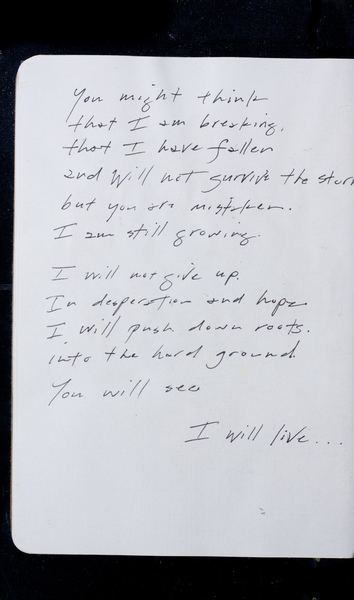 You might think
that I am breaking,
that I have fallen
and will not survive the stor
but you are mistaken.
I am still growing.
I will not give up.
In desperation and hope
I will push down roots.
into the hard ground.
You will see
I will live...